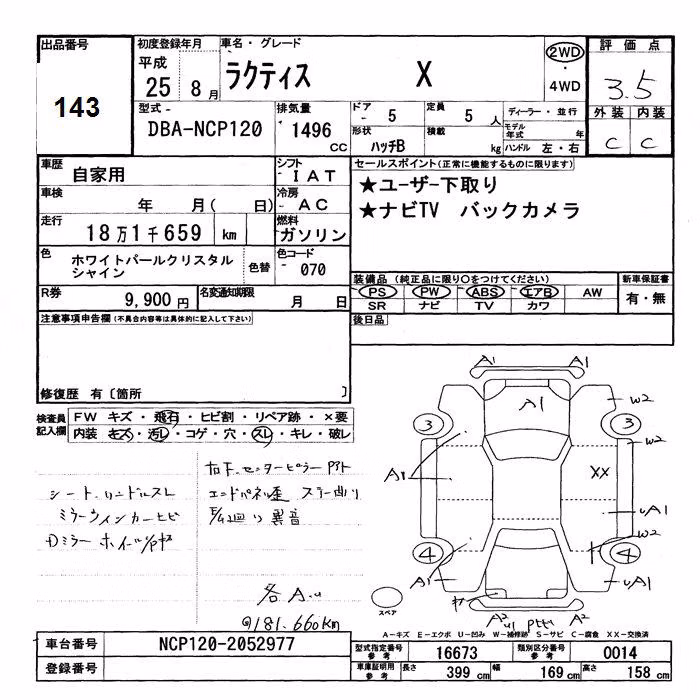 出品番号
143
初度登録年月
平成
25 8月
車名・グレード
ラクティス X
2WD
・
4WD
評価点
3.5
外装 内装
C C
型式
DBA-NCP120
排気量
1496
CC
ドア
5
定員
5人
形状
ハッチB
積載
kg
ディーラー・並行
モデル年式 年
ハンドル 左・右
車歴
自家用
シフト
IAT
車検
年 月( 日)
冷房
AC
走行
18万1千659 km
燃料
ガソリン
色
ホワイトパールクリスタル
シャイン
色替
色コード
070
R券
9,900円
名変通知期限
月 日
セールスポイント(正常に機能するものに限ります)
★ユーザー下取り
★ナビTV バックカメラ
装備品 (純正品に限り○をつけてください)
PS PW ABS エアB AW
SR ナビ TV カワ
新車保証書
有・無
後日品
注意事項申告欄(不具合内容等は具体的に記入して下さい)
修復歴 有〔箇所 〕
検査員
記入欄
FW キズ・飛石・ヒビ割・リペア跡・×要
内装 キズ・汚レ・コゲ・穴・スレ・キレ・破レ
シート、ハンドルスレ
ミラーウインカーヒビ
Dミラー ホイール
右F、センターピラー
エンドパネル歪 ステー曲り
異音
各A.u
181.660km
A1 A1
A1
W2
3 3
W2
A1
XX
uA1
W2
4 4
A1
uA1
A2 A2
u1
スペア
A-キズ E-エクボ U-凹み W-補修跡 S-サビ C-腐食 XX-交換済
車台番号
NCP120-2052977
登録番号
型式指定番号
参考
16673
類別区分番号
参考
0014
車庫証明用
参考
長さ
399 cm
幅
169 cm
高さ
158 cm